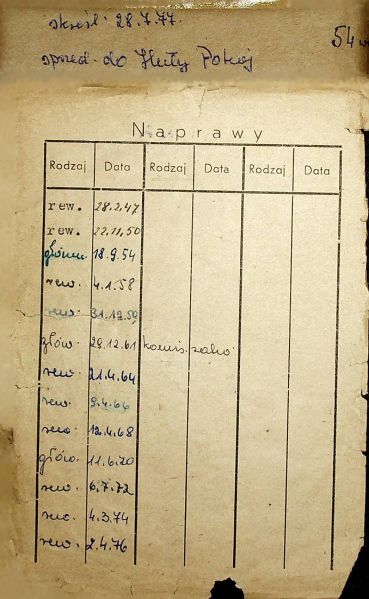 skreśl. 28.7.77.
54
sprzed. do Huty Pokój
Naprawy
Rodzaj Data Rodzaj Data Rodzaj Data
rew. 28.2.47
rew. 22.11.50
główn. 18.9.54
rew. 4.1.58
rew. 31.12.59
główn. 29.12.61
rew. 21.4.64
rew. 9.4.66
rew. 12.4.68
głów. 11.6.70
rew. 6.7.72
rew. 4.3.74
rew. 2.4.76